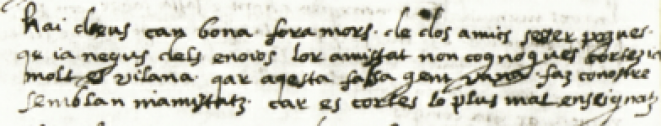 Hai deus can bona fora mors de dos amics seser pogues
qe ia negus dels enoios lor amistat non cognogues cortezia
molt es vilana qar aqesta falsa gent vana faz conoistre
semblan niamistatz car es cortes lo plus mal enseignatz